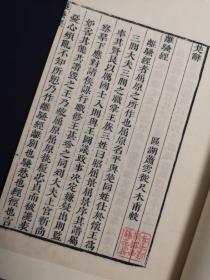 楚辭
區湖蕭雲從尺木甫較
離騷經
離騷經者屈原之所作也屈原名平與楚同姓仕於懷王爲
三閭大夫三閭之職掌王族三姓曰昭屈景屈原序其譜屬
率其賢良以厲國士入則與王圖議政事決定嫌疑出則監
察羣下應對諸侯謀行職修王甚珍之同列大夫上官靳尚
妒害其能共譖毀之王乃疏屈原屈原執履忠貞而被讒衺
憂心煩亂不知所愬乃作離騷經離別也騷愁也經徑也言